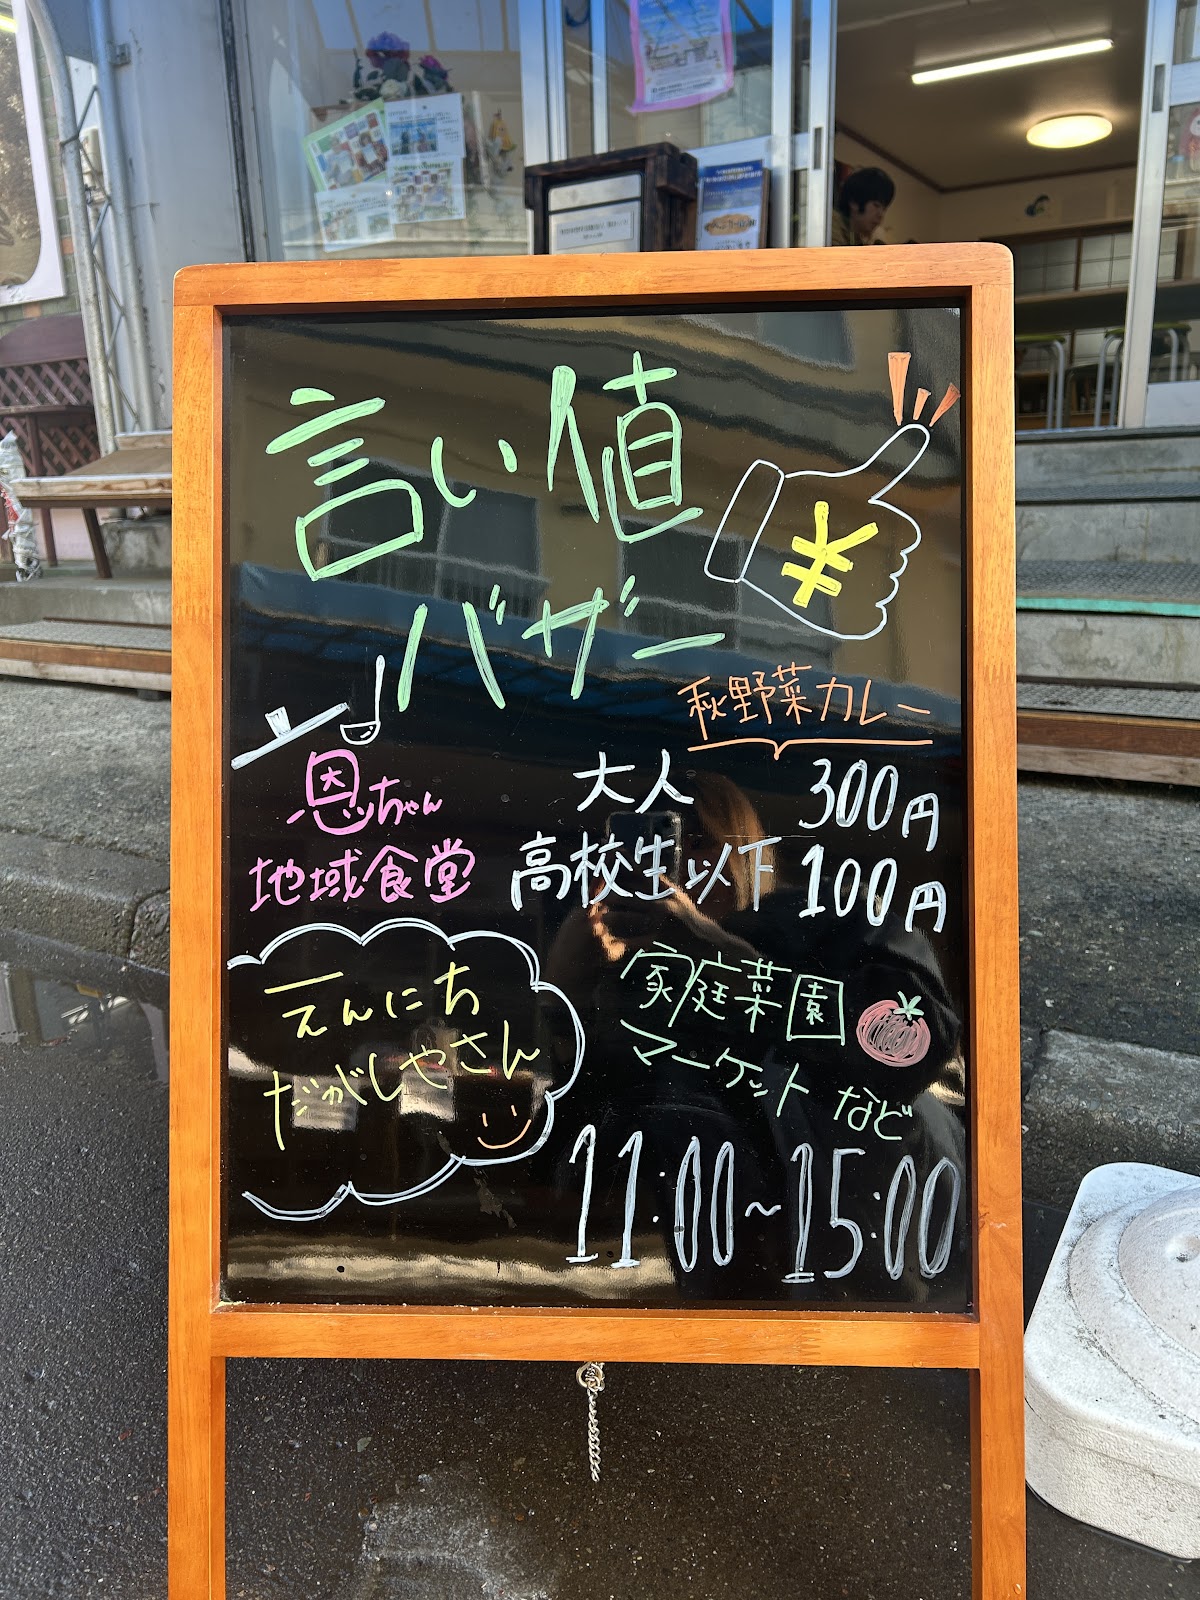 言い値
バザー
¥
秋野菜カレー
恩ちゃん
地域食堂
大人 300円
高校生以下 100円
えんにち
だがしやさん
家庭菜園
マーケット など
11:00~15:00